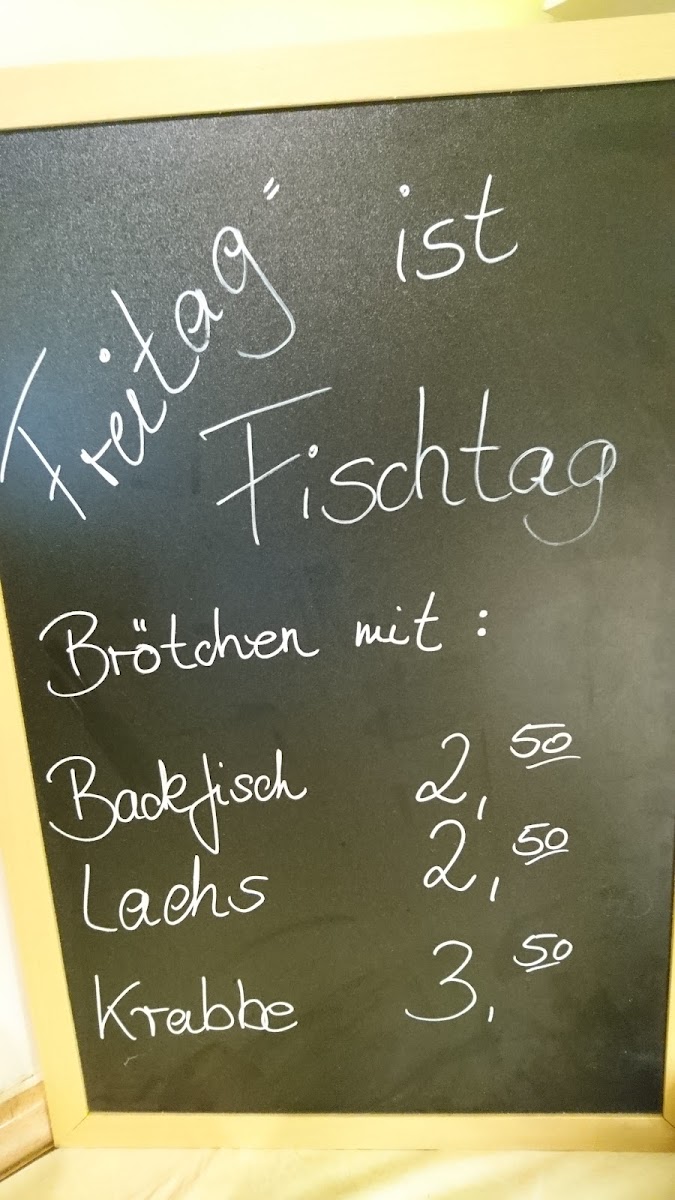 Freitag" ist
Fischtag
Brötchen mit :
Backfisch 2,50
Lachs 2,50
Krabbe 3,50